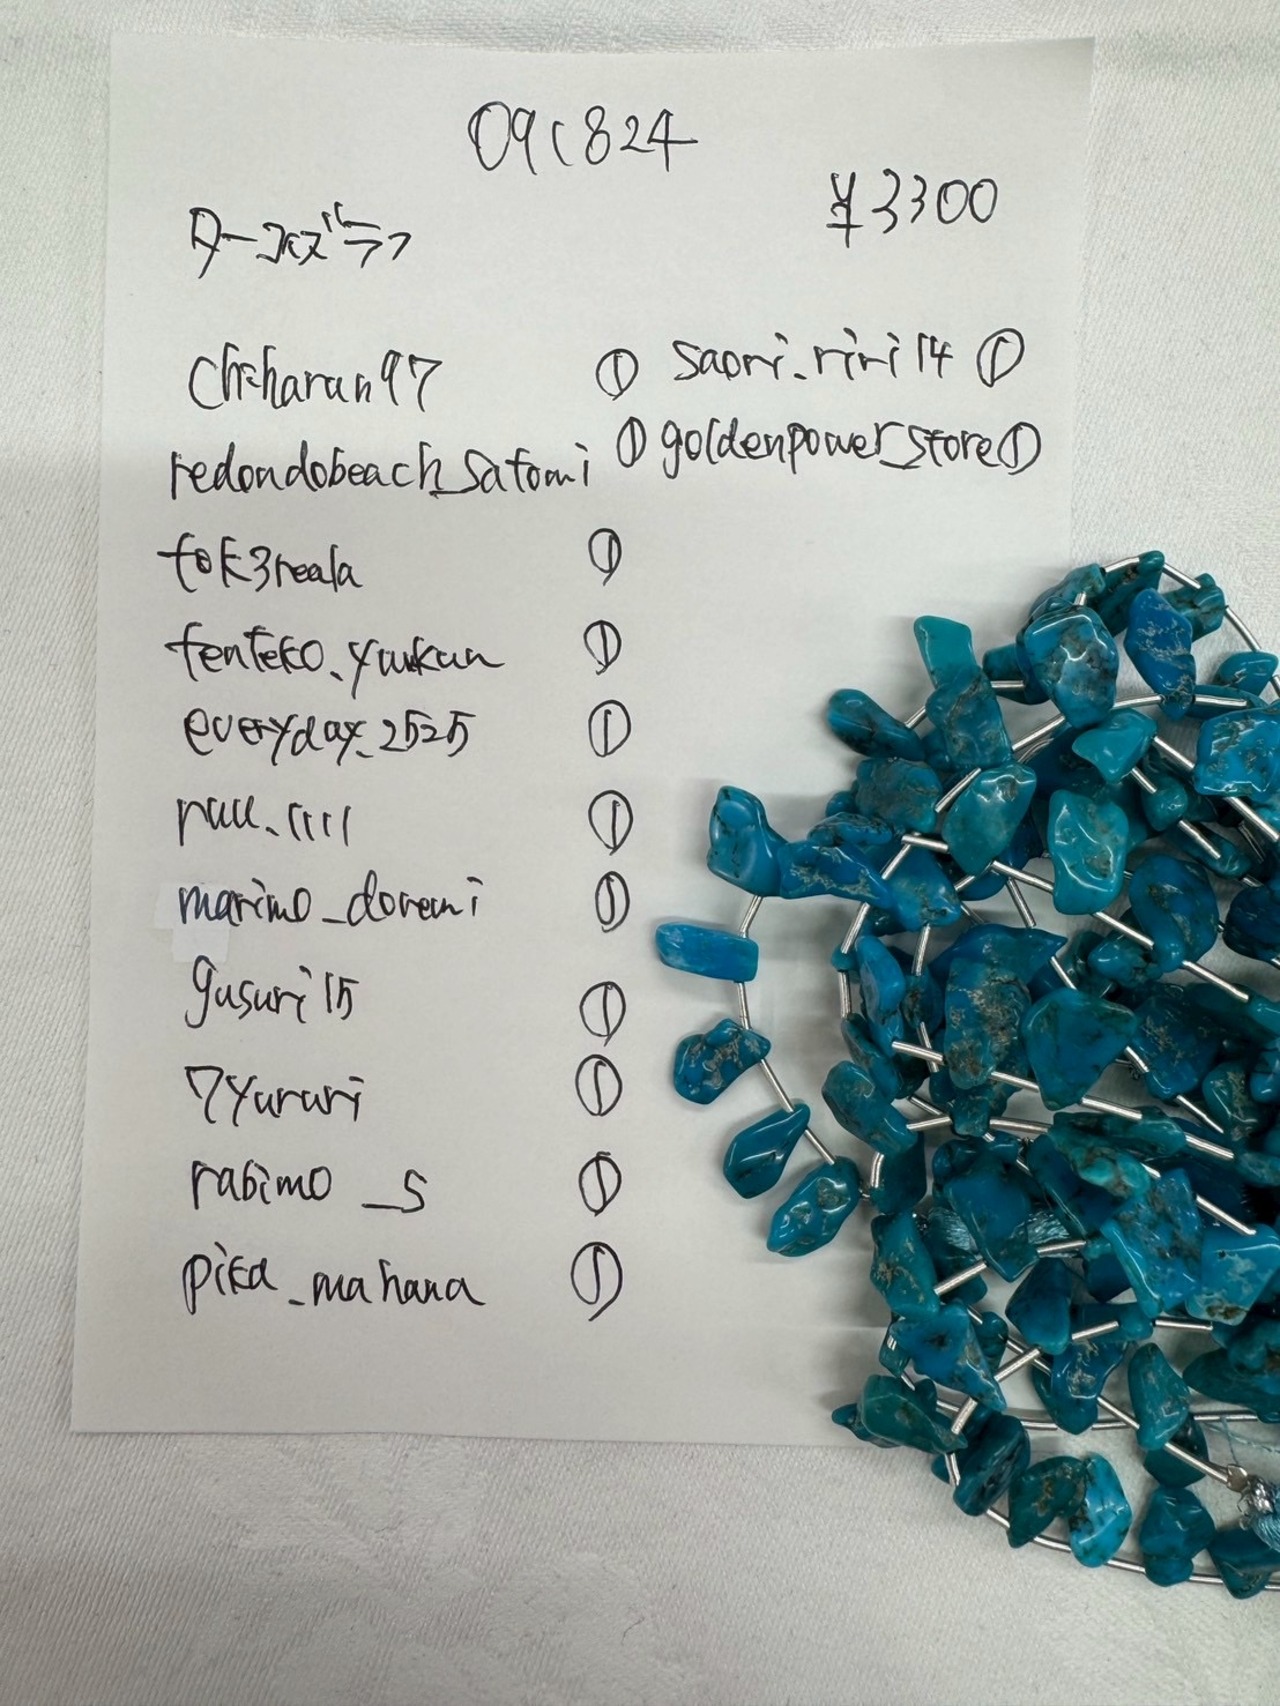 09C824
¥3300
ターコイズラフ
chiharan97 ①
saori_riri14 ①
redondobeach_satomi ①
goldenpower_store ①
tok3reala ①
tenteko_yuukun ①
everyday_2525 ①
①
marimo_doremi ①
gusuri15 ①
7yururi ①
rabimo_s ①
pika_mahana ①